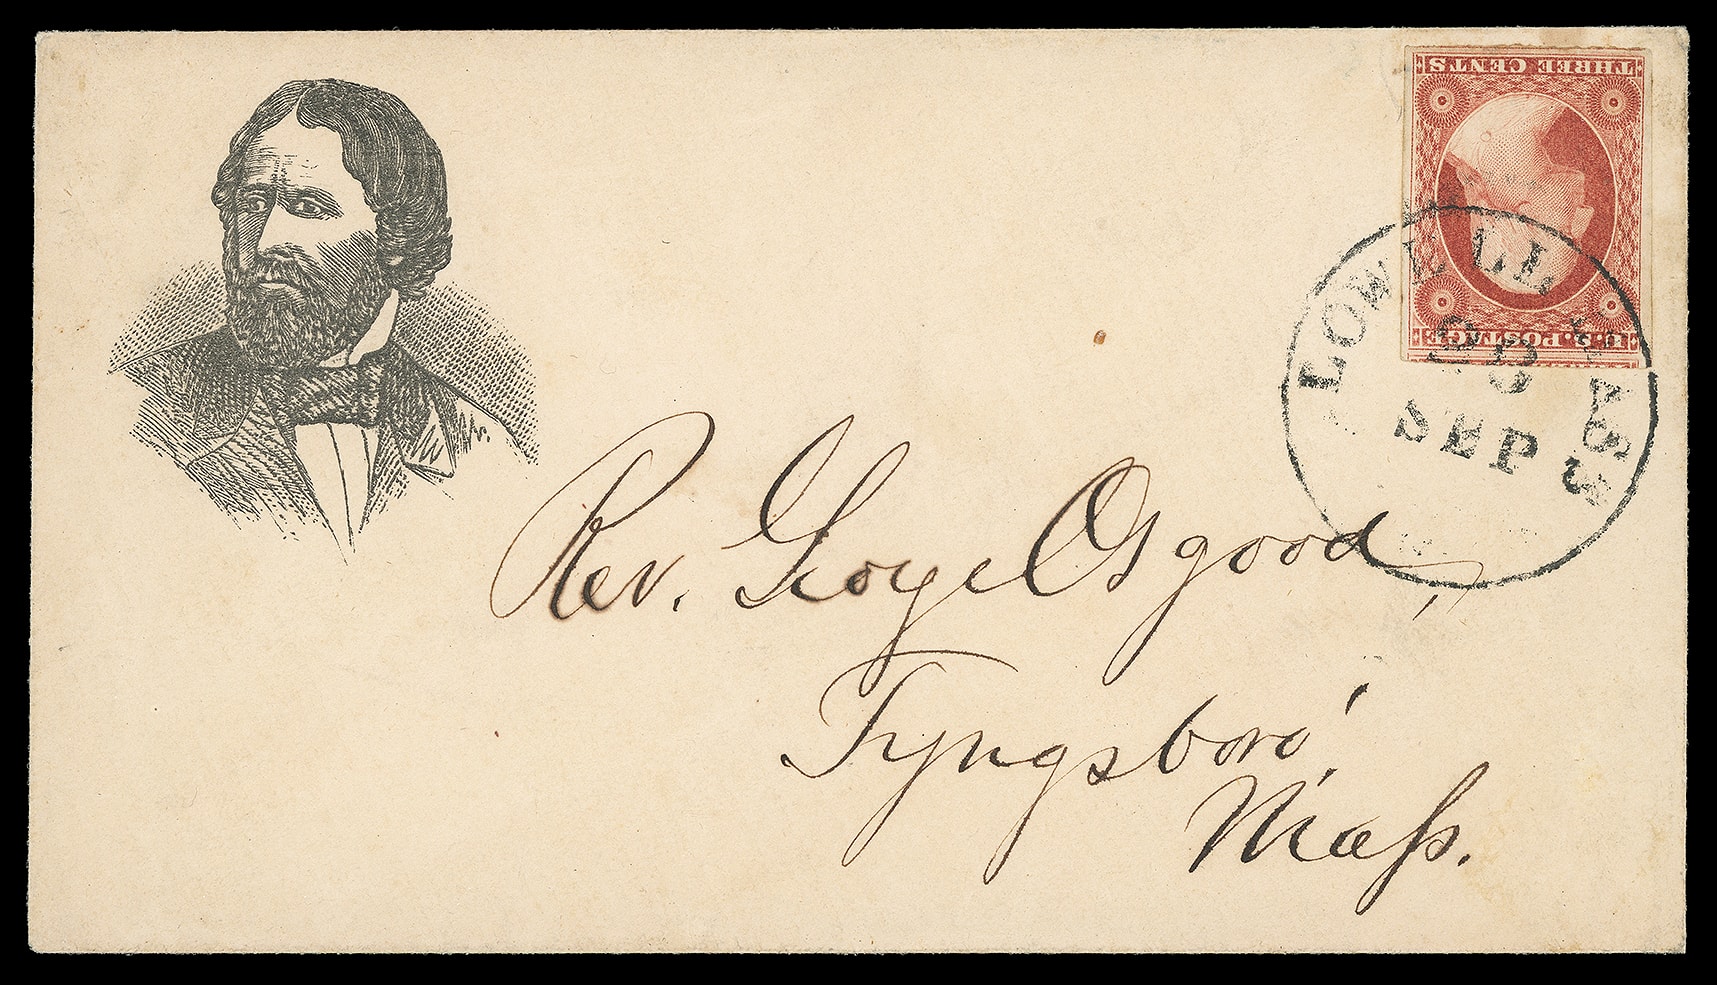 THREE CENTS
U.S. POSTAGE
LOWELL MASS
SEP
Rev. George Osgood,
Tyngsboro'.
Maſs.